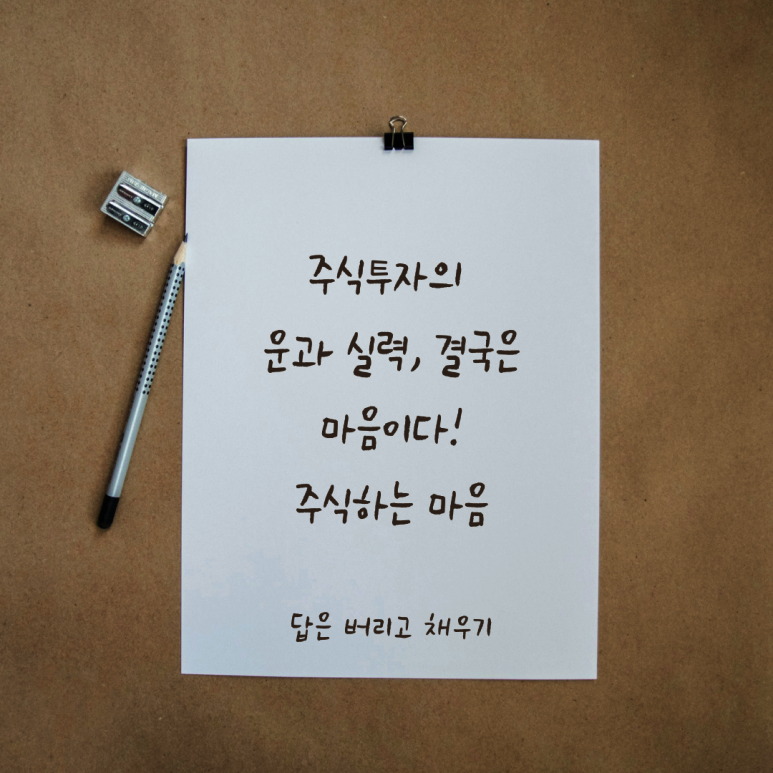 주식투자의
운과 실력, 결국은
마음이다!
주식하는 마음
답은 버리고 채우기